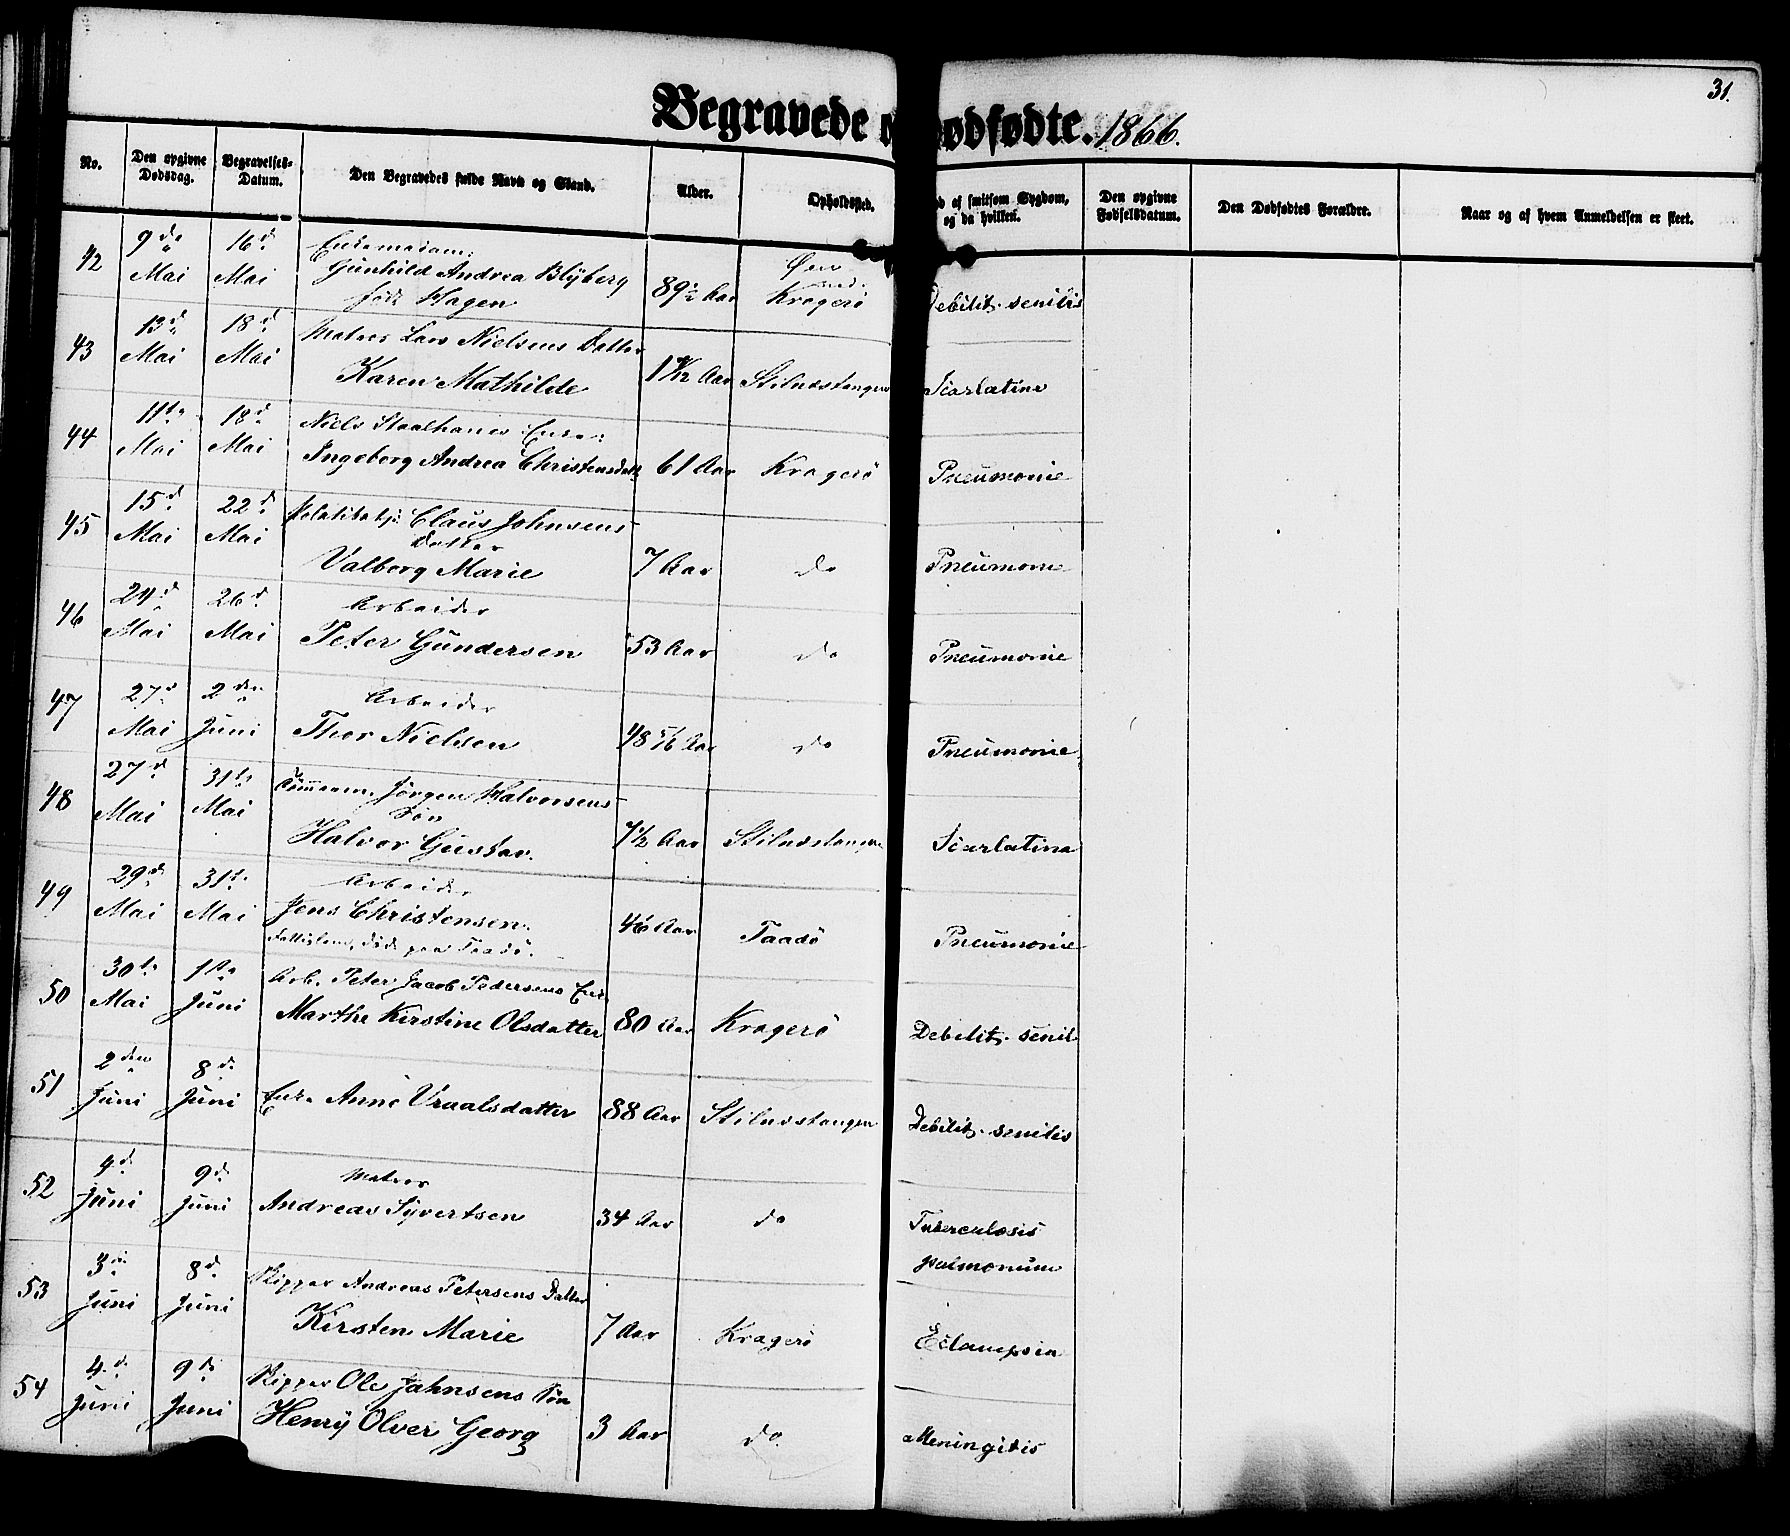 31.
Begravede o ødfødte. 1866.
No.
Den opgivne Dødsdag.
Begravelses-Datum.
Den Begravedes fulde Navn og Stand.
Alder.
Opholdssted.
d af smitsom Sygdom, og da hvilken.
Den opgivne Fødselsdatum.
Den Dødfødtes Forældre.
Naar og af hvem Anmeldelsen er skeet.
42 9de Mai 16d Mai
Gunhild Andrea Blyberg
født Hagen 89 1/2 Aar Kragerö Debilit. senilis
43 13d Mai 18d Mai Matros Lars Nielsens Datter
Karen Mathilde Aar Stilnæstangen Scarlatina
44 11te Mai 18d Mai Niels Staalhanes Enke:
Ingeborg Andrea Christensdatt 61 Aar Kragerö Pneumonie
45 15d Mai 22d Mai Claus Johnsens
Datter
Valborg Marie 7 Aar do Pneumonie
46 24d Mai 26d Mai Arbeider
Peter Gundersen 53 Aar do Pneumonie
47 27d Mai 2den Juni Arbeider
Thor Nielsen 48 5/6 Aar do Pneumonie
48 27d Mai 31te Mai Tömmerm. Jörgen Halvorsens
Sön
Halvor Gustav. 7 1/2 Aar Stilnæstangen Scarlatina
49 29d Mai 31te Mai Arbeider
Jens Christensen.
död paa Taadö. 46 Aar Taadö Pneumonie
50 30te Mai 1ste Juni Arb. Peter Jacob Pedersens Enke
Marthe Kirstine Olsdatter 80 Aar Kragerö Debilit. senil
51 2den Juni 8d Juni Enke Anne Vraalsdatter 88 Aar Stilnæstangen Debilit. senilis
52 4d Juni 9d Juni Matros
Andreas Syvertsen 34 Aar do Tuberculosis
pulmonum
53 3die Juni 8d Juni Skipper Andreas Petersens Datter
Kirsten Marie 7 Aar Kragerö Eclampsia
54 4d Juni 9d Juni Skipper Ole Jahnsens Sön
Henry Olver Georg 3 Aar do Meningitis